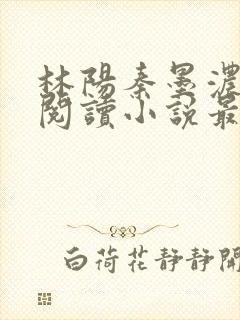 林陽秦墨濃
閱讀小說最
白荷花靜靜開